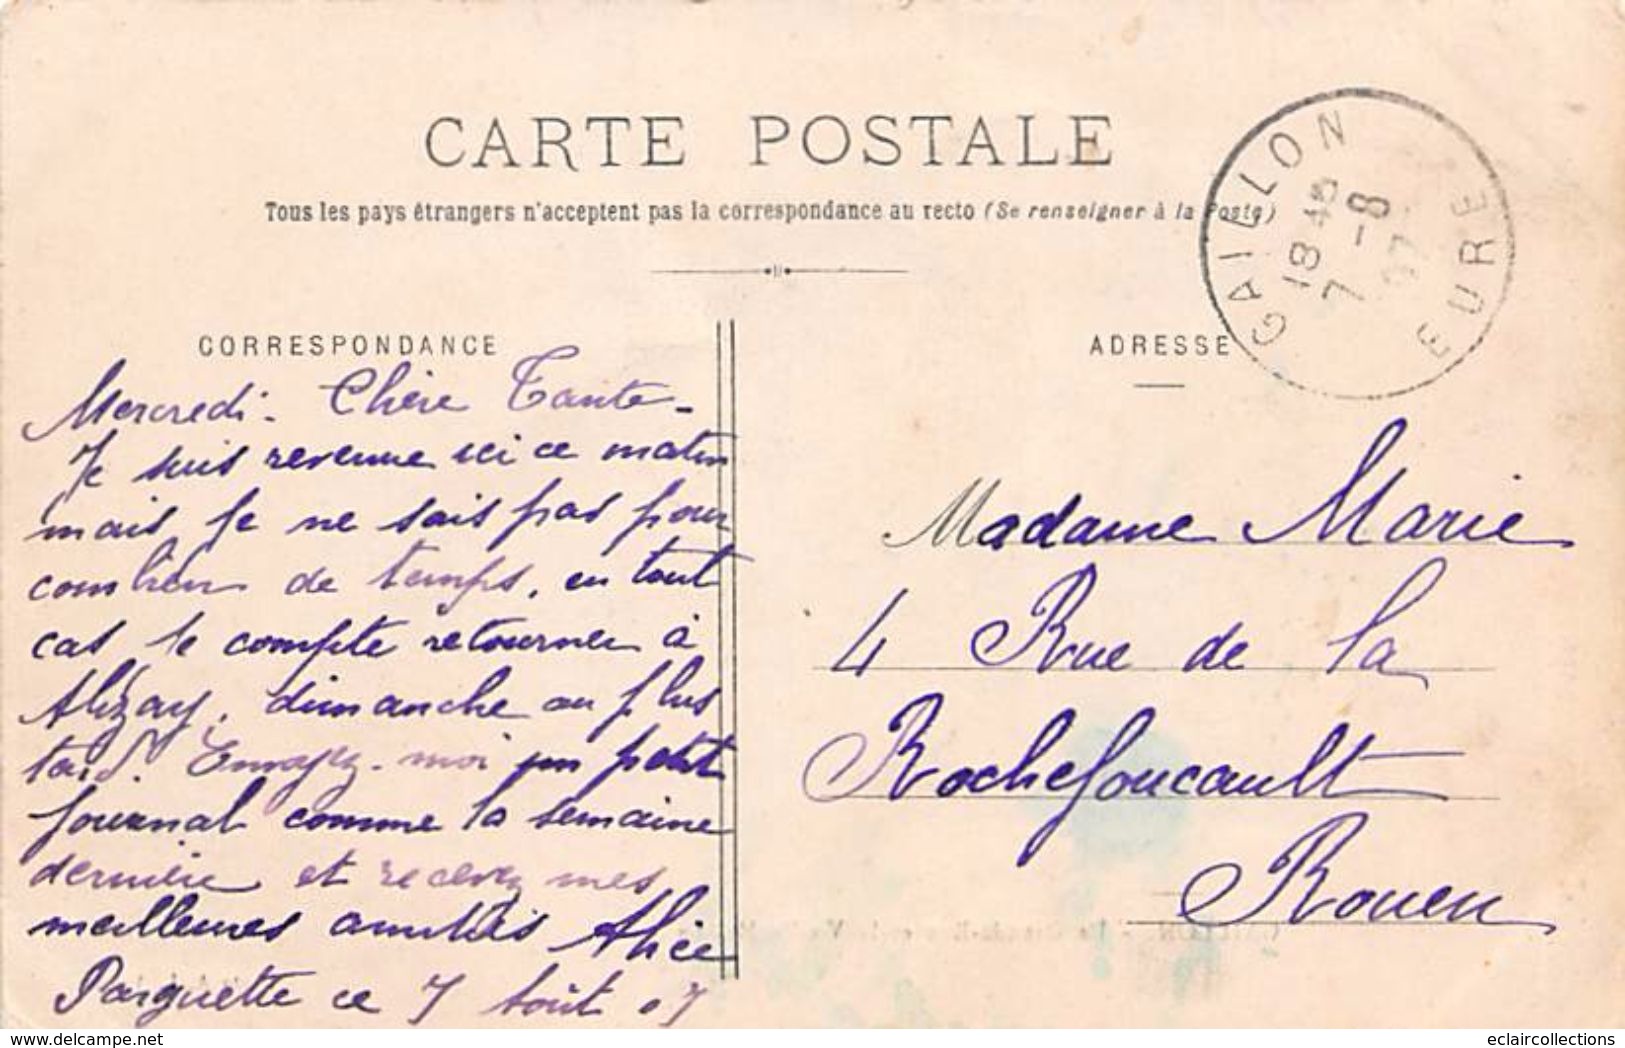 CARTE POSTALE
Tous les pays étrangers n'acceptent pas la correspondance au recto (Se renseigner à la Poste)
GAILLON
18 45
7 - 8
07
EURE
CORRESPONDANCE
ADRESSE
Mercredi. Chère Tante.
Je suis revenue ici ce matin
mais je ne sais pas pour
combien de temps, en tout
cas je compte retourner à
Alizay, dimanche au plus
tard. Envoyez-moi un petit
journal comme la semaine
dernière et recevez mes
meilleures amitiés Alice
ce 7 Août 07
Madame Marie
4 Rue de la
Rochefoucault
Rouen
eclaircollections
www.delcampe.net